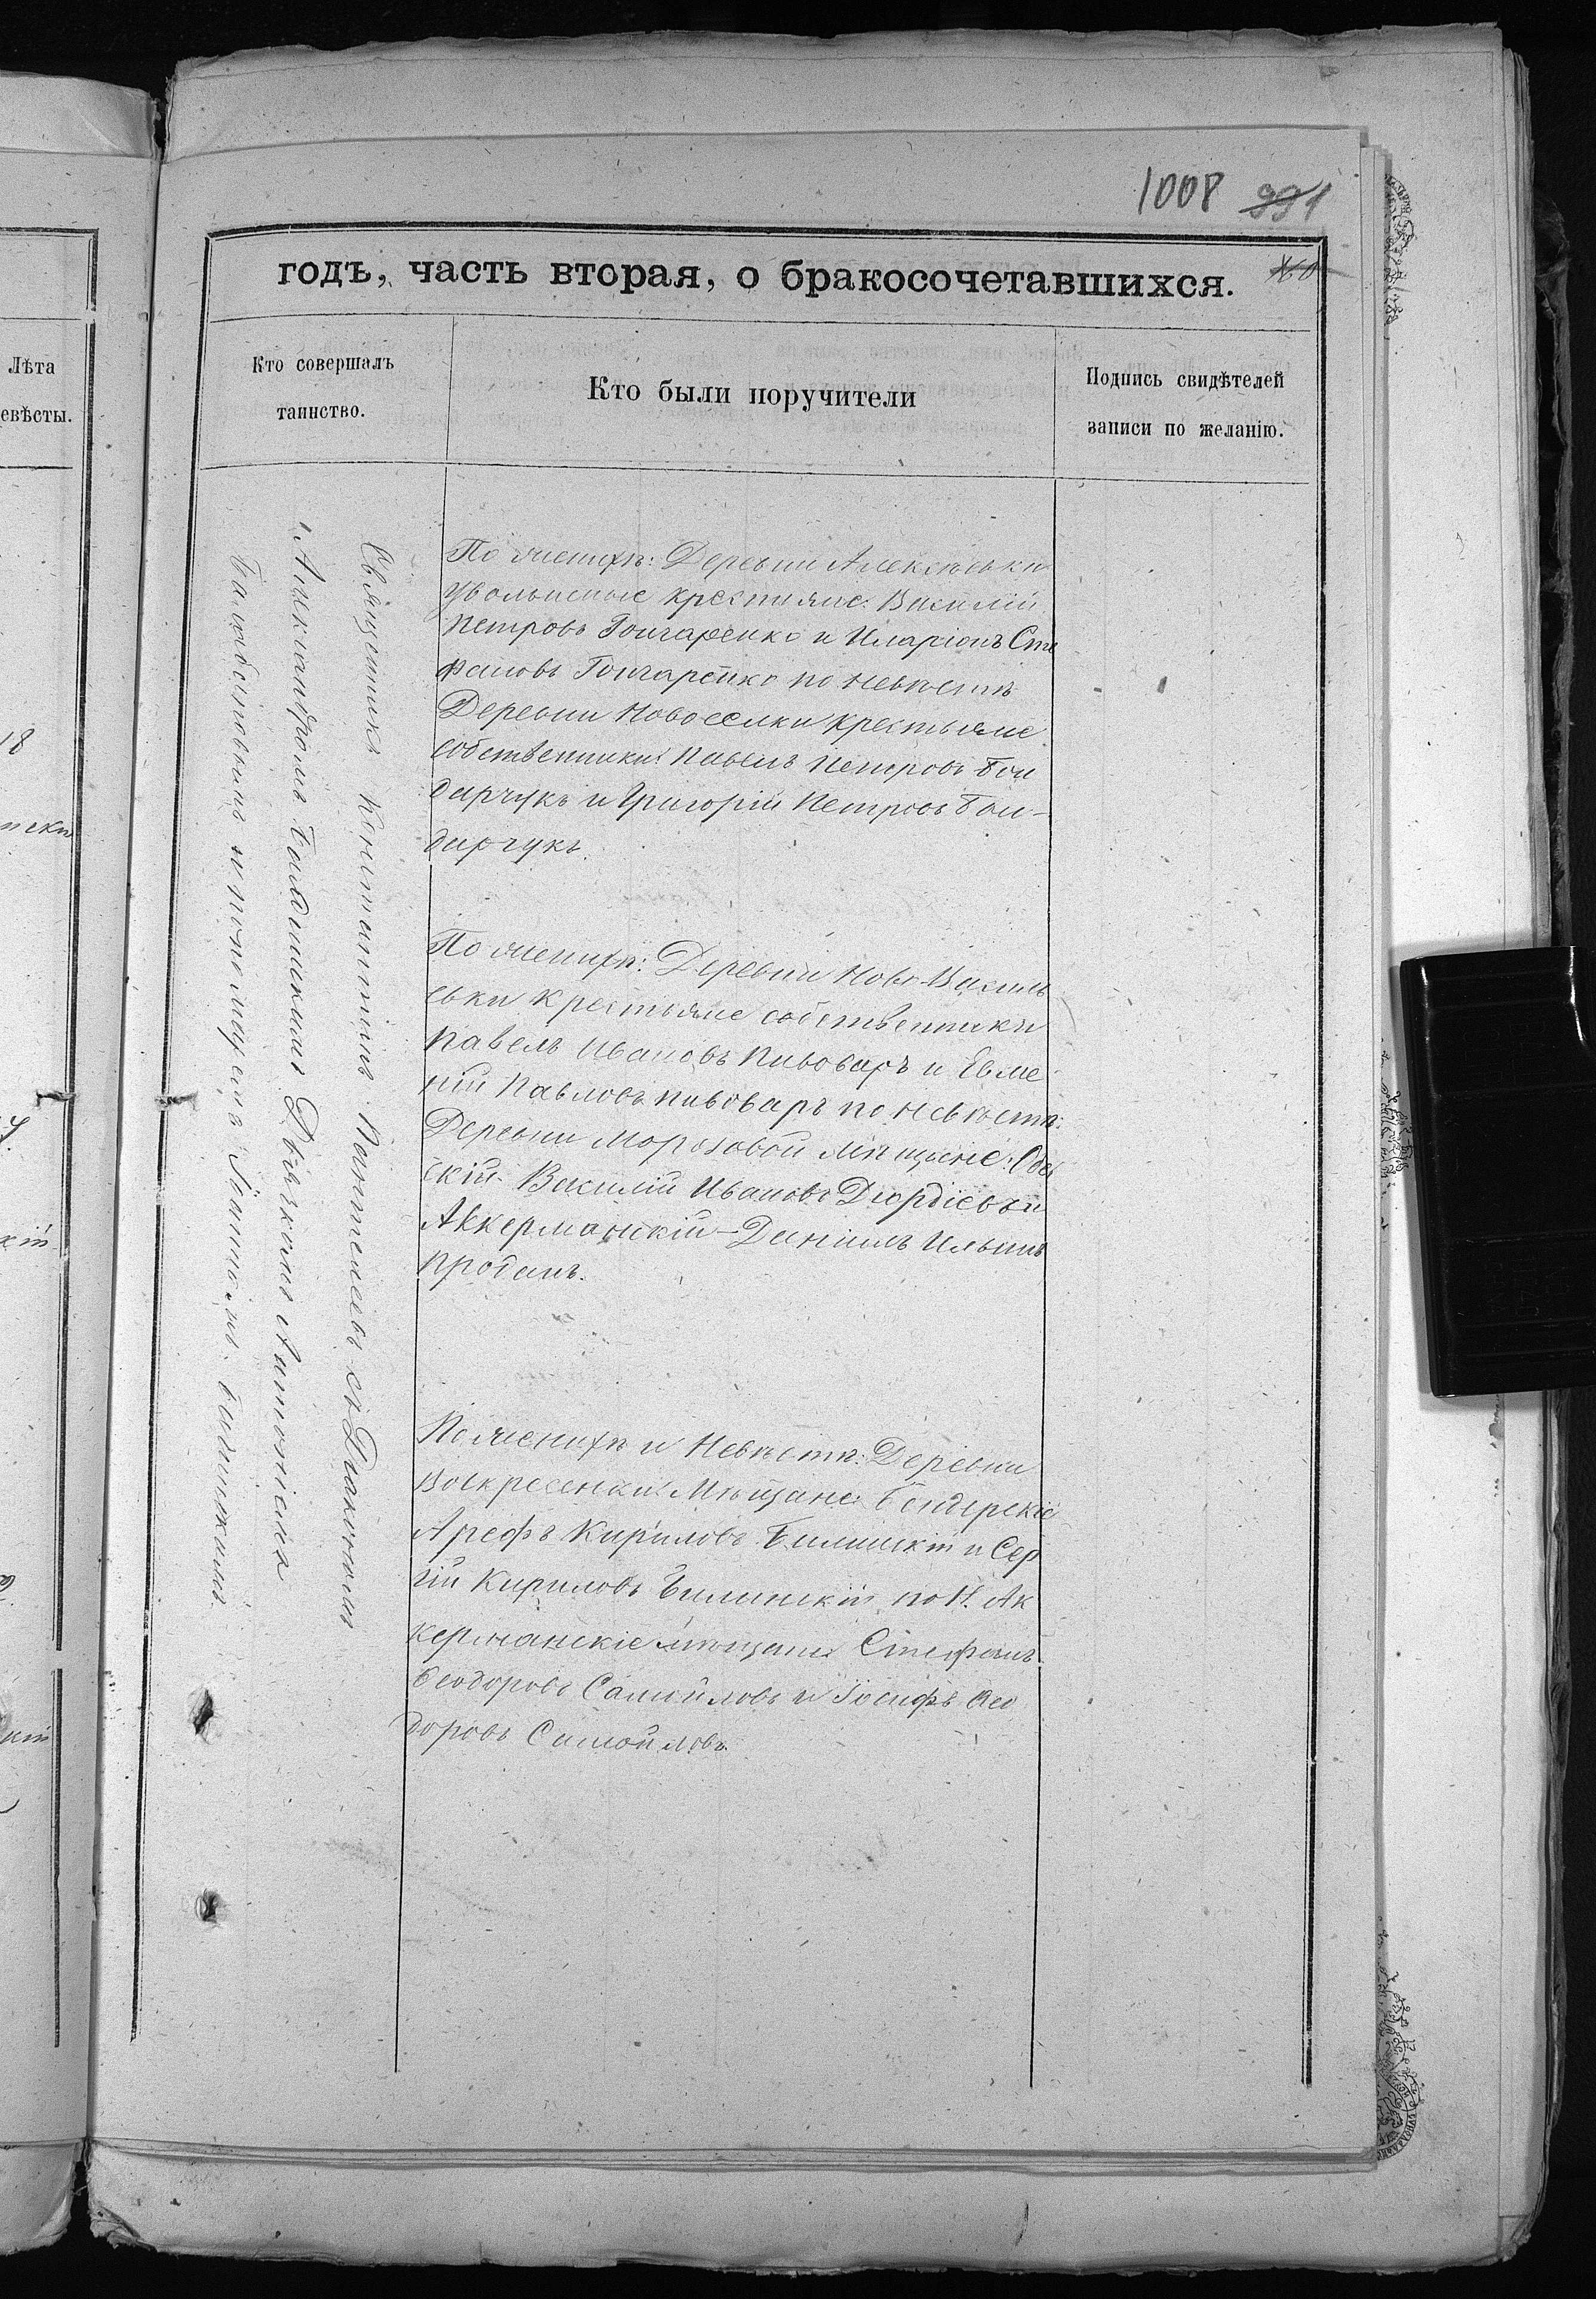 1008 991
годъ, часть вторая, о бракосочетавшихся.
Лѣта
евѣсты.
Кто совершалъ
таинство.
Кто были поручители
Подпись свидѣтелей
записи по желанію.
18
кій
Священникъ Константинъ Пантелеевъ съ Діакономъ
Александромъ Балдинскимъ Дьячкомъ Антоніемъ
и пономаремъ Іанномъ
По женихѣ: Деревни Алексѣевки
увольненые крестьяне: Василій
Петровъ Гончаренко и Иларіонъ Сте
фановъ Гончаренко по невѣстѣ
Деревни Новоселки крестьяне
собственники: Павелъ Петровъ Бон
дарчукъ и Григорій Петровъ Бон-
дарчукъ.
По женихѣ: Деревни Ново-Василь
евки крестьяне собственники
Павелъ Ивановъ Пивоваръ и Евме
ній Павловъ Пивоваръ по невѣстѣ:
Деревни Морозовой мѣщане: Одес
скій Василій Ивановъ Дюрдіевъ и
Аккерманскій-Даніилъ Ильинъ
Проданъ.
По женихѣ и Невѣстѣ: Деревни
Воскресенки: Мѣщане: Бендерскіе
Арефъ Кириловъ Билинскій и Сер
гій Кириловъ Билинскій по Н. Ак
керманскіе мѣщане Стефанъ
Ѳеодоровъ Самойловъ и Іосифъ Ѳео
доровъ Самойловъ.